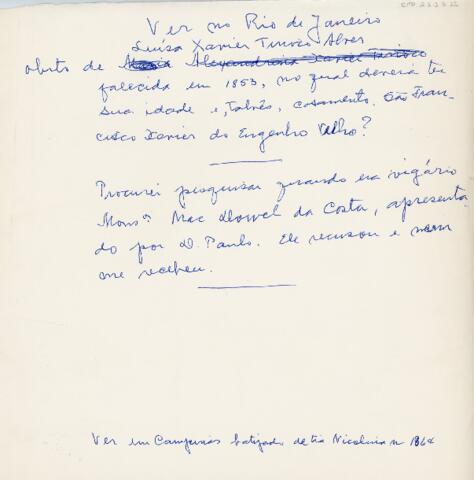 Ver no Rio de Janeiro
Luísa Xavier Tinoco Alves
obito de Maria Alexandrina Xavier Tinoco
falecida em 1853, no qual deveria ter
sua idade e, talvês, casamento. São Fran-
cisco Xavier do Engenho Velho?
Procurei pesquisar quando era vigário
Monsº Mac Dowel da Costa, apresenta
do por D. Paulo. Ele recusou e nem
me recebeu.
Ver em Campinas batizado de tia Nicolina n 1864